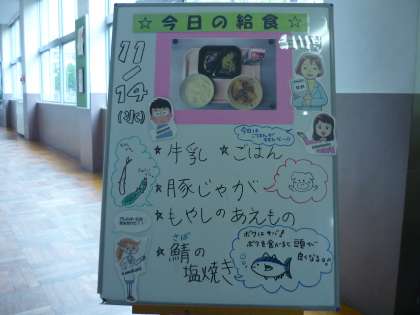 ☆今日の給食☆
11/14
(水)
★牛乳 ★ごはん
★豚じゃが
★もやしのあえもの
★鯖の
さば
塩焼き
ボクはサバ!
ボクを食べると頭が
良くなるよ!